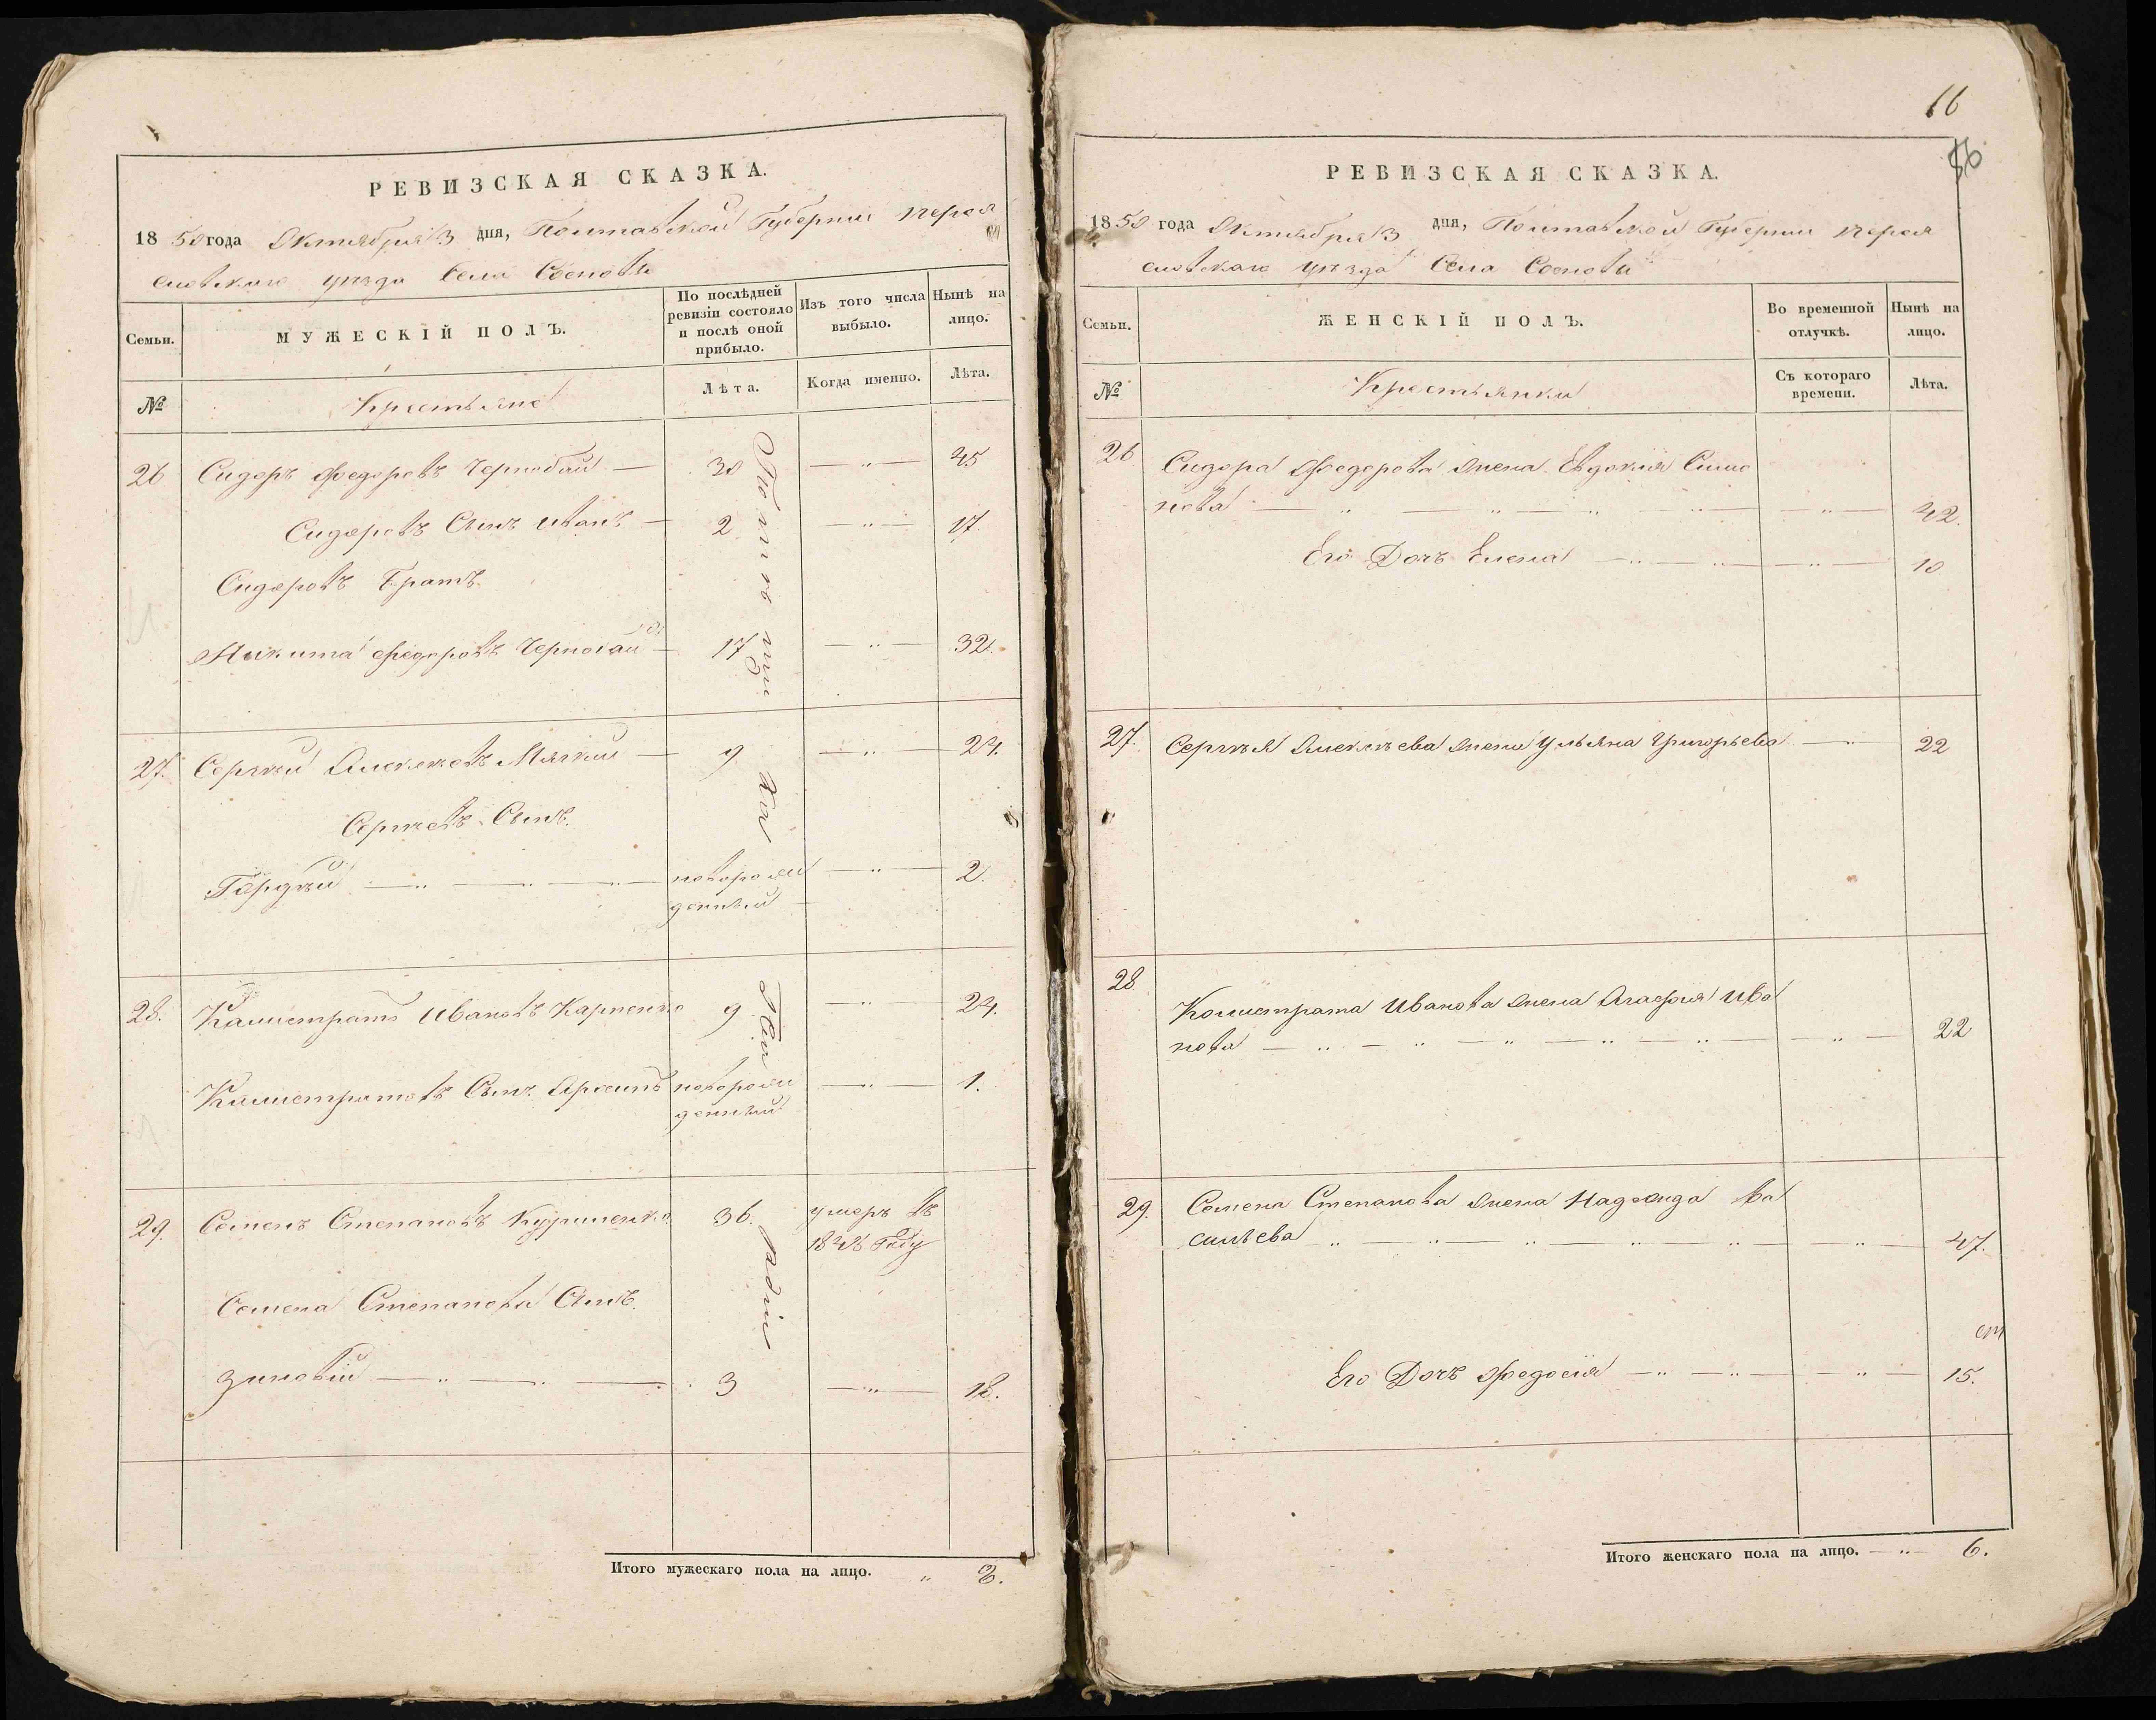 РЕВИЗСКАЯ СКАЗКА.
1850 года Октября 3 дня, Полтавской Губернии Перея
славского уезда Села Соснова
Семьи.
МУЖЕСКІЙ ПОЛЪ.
По послѣдней
ревизіи состояло
и послѣ оной
прибыло.
Изъ того числа
выбыло.
Нынѣ на
лицо.
№
Крестьяне
Лѣта.
Когда именно.
Лѣта.
26 Сидоръ Федоровъ Чернобай — 30 — „ — 45
Сидоровъ Сынъ Иванъ — 2 — „ — 17.
Сидоровъ Братъ
Никита Федоровъ Чернобай — 17 — „ — 32.
27. Сергѣй Алексѣевъ Мягкий — 9 — „ — 24.
Сергѣевъ Сынъ.
Гордѣй — „ — „ — „ — новорож — „ — 2.
денный
28. Калистратъ Ивановъ Карпенко 9 — „ — 24.
Калистратовъ Сынъ Архипъ новорож — „ — 1.
денный
29. Семенъ Степановъ Куриленко 36. умеръ въ
1848 Году
Семена Степанова Сынъ.
Зиновій — „ — „ — 3 — „ — 18.
Итого мужескаго пола на лицо. „ 8.
16
РЕВИЗСКАЯ СКАЗКА.
1850 года Октября 3 дня, Полтавской Губернии Перея
славского уѣзда Села Соснова
Семьи.
ЖЕНСКІЙ ПОЛЪ.
Во временной
отлучкѣ.
Нынѣ на
лицо.
№
Крестьянки
Съ котораго
времени.
Лѣта.
26 Сидора Федорова жена Евдокия Симо
нова — „ — „ — „ — „ — „ — 42.
Его Дочь Елена — „ — „ — „ — 10
27. Сергѣя Алексѣева жена Ульяна Григорьева — „ — 22
28 Калистрата Иванова жена Агафия Ива
нова — „ — „ — „ — „ — „ — „ — 22
29. Семена Степанова жена Надежда Ва
сильева „ — „ — „ — „ — „ — „ — 47.
Его Дочь Федосія — „ — „ — „ — 15.
Итого женскаго пола на лицо. — „ — 6.